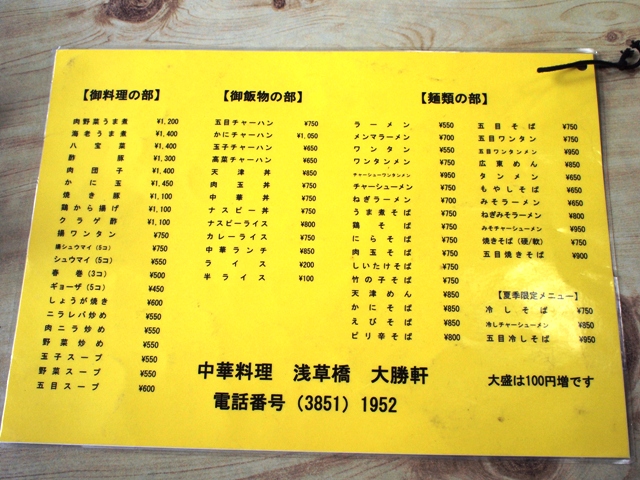 【御料理の部】
肉野菜うま煮 ¥1,200
海老うま煮 ¥1,400
八宝菜 ¥1,400
酢豚 ¥1,300
肉団子 ¥1,400
かに玉 ¥1,450
焼き豚 ¥1,100
鶏から揚げ ¥1,100
クラゲ酢 ¥1,100
揚ワンタン ¥750
揚シュウマイ(5コ) ¥750
シュウマイ(5コ) ¥550
春巻(3コ) ¥500
ギョーザ(5コ) ¥450
しょうが焼き ¥600
ニラレバ炒め ¥550
肉ニラ炒め ¥550
野菜炒め ¥550
玉子スープ ¥550
野菜スープ ¥550
五目スープ ¥600
【御飯物の部】
五目チャーハン ¥750
かにチャーハン ¥1,050
玉子チャーハン ¥650
高菜チャーハン ¥650
天津丼 ¥850
肉玉丼 ¥750
中華丼 ¥750
ナスビー丼 ¥750
ナスビーライス ¥800
カレーライス ¥750
中華ランチ ¥850
ライス ¥200
半ライス ¥100
【麺類の部】
ラーメン ¥550
メンマラーメン ¥700
ワンタン ¥550
ワンタンメン ¥750
チャーシューワンタンメン ¥950
チャーシューメン ¥750
ねぎラーメン ¥700
うま煮そば ¥750
鶏そば ¥750
にらそば ¥750
肉玉そば ¥750
しいたけそば ¥750
竹の子そば ¥750
天津めん ¥850
かにそば ¥850
えびそば ¥850
ピリ辛そば ¥850
五目そば ¥750
五目ワンタン ¥750
五目ワンタンメン ¥950
広東めん ¥850
タンメン ¥650
もやしそば ¥650
みそラーメン ¥650
ねぎみそラーメン ¥800
みそチャーシューメン ¥950
焼きそば(硬/軟) ¥750
五目焼きそば ¥900
【夏季限定メニュー】
冷しそば ¥750
冷しチャーシューメン ¥850
五目冷しそば ¥950
中華料理 浅草橋 大勝軒
電話番号(3851)1952
大盛は100円増です